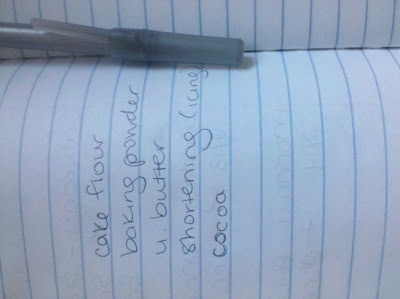 cake flour
baking powder
u. butter
shortening (icing)
cocoa